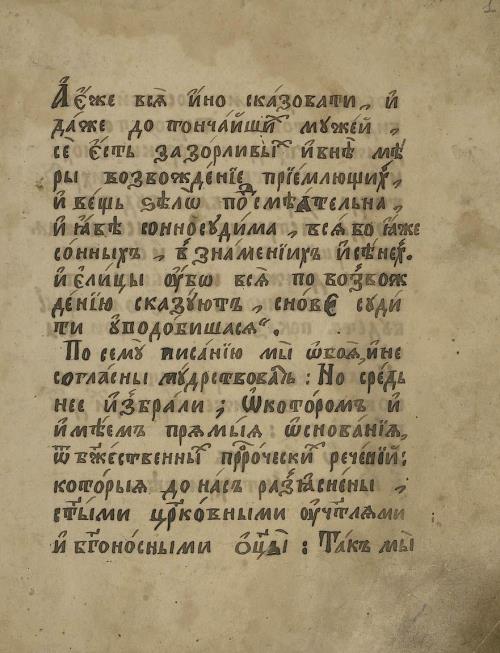 А҆ е҆́же всѧ̀ и҆́но сказовати, и҆
да́же до тонча́йши мꙋже́й,
сѐ є҆́сть зазорливы и҆внѣ̀ мѣ́
ры возвожде́нїе прїе́млющих,
И҆ ве́щь ѕѣлѡ̀ посмѣѧ́тельна,
и҆ ꙗ҆́вѣ сонносꙋди́ма, всѧ́ бо ꙗ҆́же
со́нныхъ, в знаме́нїихъ и҆сѣ́нех.
и҆ є҆ли́цы ᲂу҆́бѡ всѧ̀ по возвож
де́нїю ска́зꙋютъ, сно́ве сꙋди́
ти ᲂу҆подо́бишася.
По семꙋ̀ писа́нїю мы̀ ѡ҆боѧ̀ и҆не
согла́сны мꙋ́дрствовалъ: Но сре́дь
нее и҆збра́ли; Ѡ҆кото́ромъ и҆
и҆мѣ́емъ прѧмы́я: ѡ҆снова́нїѧ,
ѿ бж҃е́ственны прⷪ҇ро́чески рече́нїй:
кото́рыѧ до на́съ разъꙗ҆снены̀,
ст҃ы́ми цр҃ко́вными ᲂу҆чт҃лями
и҆ бг҃оно́сными ѻ҆ц҃ы̀: Та́къ мы̀
1